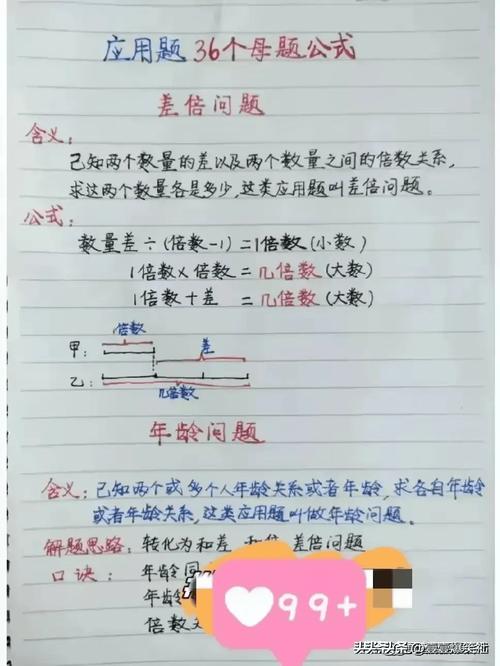 应用题 36个母题公式
差倍问题
含义:
已知两个数量的差以及两个数量之间的倍数关系,
求这两个数量各是多少,这类应用题叫差倍问题。
公式:
数量差÷(倍数-1)=1倍数(小数)
1倍数×倍数=几倍数(大数)
1倍数+差 =几倍数(大数)
1倍数
甲:
差
乙:
几倍数
年龄问题
含义:已知两个或多个人年龄关系或者年龄,求各自年龄
或者年龄关系,这类应用题叫做年龄问题。
解题思路:转化为和差 和倍 差倍问题
口诀:年龄同
年龄
倍数
99+
头条